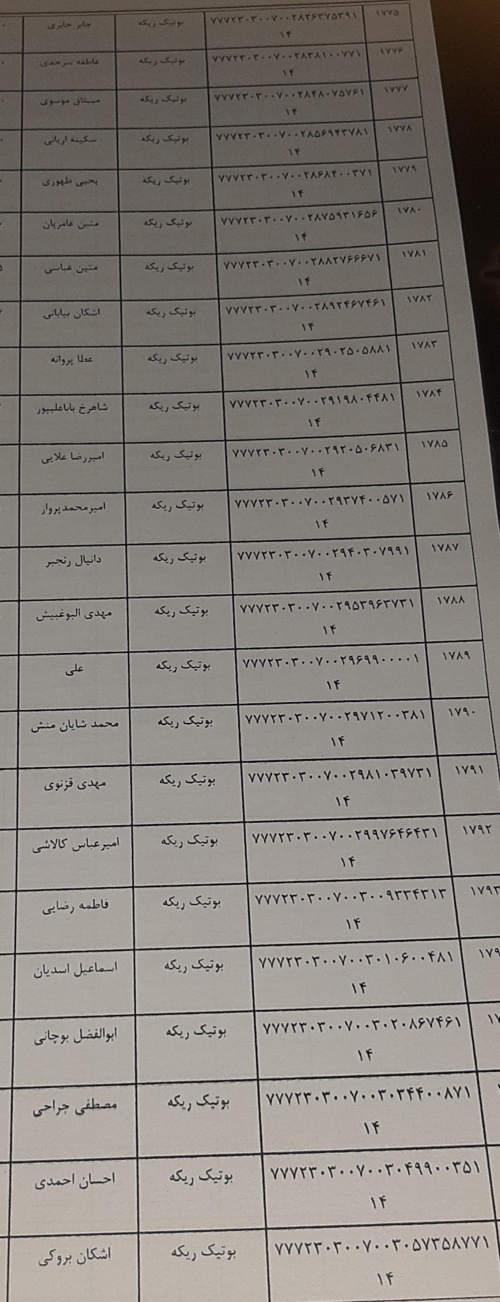 ۱۷۷۵ ۷۷۷۲۳۰۳۰۰۷۰۰۲۸۲۶۳۷۵۳۹۱ بوتیک ریکه جابر جابری
۱۴
۱۷۷۶ ۷۷۷۲۳۰۳۰۰۷۰۰۲۸۳۸۱۰۰۷۷۱ بوتیک ریکه عاطفه سرحدی
۱۴
۱۷۷۷ ۷۷۷۲۳۰۳۰۰۷۰۰۲۸۴۸۰۷۵۷۶۱ بوتیک ریکه میثاق موسوی
۱۴
۱۷۷۸ ۷۷۷۲۳۰۳۰۰۷۰۰۲۸۵۶۹۴۳۷۸۱ بوتیک ریکه سکینه اریانی
۱۴
۱۷۷۹ ۷۷۷۲۳۰۳۰۰۷۰۰۲۸۶۸۴۰۰۳۷۱ بوتیک ریکه یحیی طهوری
۱۴
۱۷۸۰ ۷۷۷۲۳۰۳۰۰۷۰۰۲۸۷۵۹۳۱۶۵۶ بوتیک ریکه متین عامریان
۱۴
۱۷۸۱ ۷۷۷۲۳۰۳۰۰۷۰۰۲۸۸۲۷۶۶۶۷۱ بوتیک ریکه متین عباسی
۱۴
۱۷۸۲ ۷۷۷۲۳۰۳۰۰۷۰۰۲۸۹۲۴۶۷۴۶۱ بوتیک ریکه اشکان بیابانی
۱۴
۱۷۸۳ ۷۷۷۲۳۰۳۰۰۷۰۰۲۹۰۲۵۰۵۸۸۱ بوتیک ریکه عطا پروانه
۱۴
۱۷۸۴ ۷۷۷۲۳۰۳۰۰۷۰۰۲۹۱۹۸۰۴۴۸۱ بوتیک ریکه شاهرخ باباعلیپور
۱۴
۱۷۸۵ ۷۷۷۲۳۰۳۰۰۷۰۰۲۹۲۰۵۰۶۸۳۱ بوتیک ریکه امیررضا علایی
۱۴
۱۷۸۶ ۷۷۷۲۳۰۳۰۰۷۰۰۲۹۳۷۴۰۰۵۷۱ بوتیک ریکه امیرمحمدپرواز
۱۴
۱۷۸۷ ۷۷۷۲۳۰۳۰۰۷۰۰۲۹۴۰۳۰۷۹۹۱ بوتیک ریکه دانیال رنجبر
۱۴
۱۷۸۸ ۷۷۷۲۳۰۳۰۰۷۰۰۲۹۵۳۹۶۳۷۳۱ بوتیک ریکه مهدی البوغبیش
۱۴
۱۷۸۹ ۷۷۷۲۳۰۳۰۰۷۰۰۲۹۶۹۹۰۰۰۰۱ بوتیک ریکه علی
۱۴
۱۷۹۰ ۷۷۷۲۳۰۳۰۰۷۰۰۲۹۷۱۲۰۰۳۸۱ بوتیک ریکه محمد شایان منش
۱۴
۱۷۹۱ ۷۷۷۲۳۰۳۰۰۷۰۰۲۹۸۱۰۳۹۷۳۱ بوتیک ریکه مهدی قزنوی
۱۴
۱۷۹۲ ۷۷۷۲۳۰۳۰۰۷۰۰۲۹۹۷۶۴۶۴۳۱ بوتیک ریکه امیرعباس کالاشی
۱۴
۱۷۹۳ ۷۷۷۲۳۰۳۰۰۷۰۰۳۰۰۹۳۳۴۳۱۳ بوتیک ریکه فاطمه رضایی
۱۴
۱۷۹ ۷۷۷۲۳۰۳۰۰۷۰۰۳۰۱۰۶۰۰۴۸۱ بوتیک ریکه اسماعیل اسدیان
۱۴
۱۷ ۷۷۷۲۳۰۳۰۰۷۰۰۳۰۲۰۸۶۷۴۶۱ بوتیک ریکه ابوالفضل بوچانی
۱۴
۷۷۷۲۳۰۳۰۰۷۰۰۳۰۳۴۴۰۰۸۷۱ بوتیک ریکه مصطفی جراحی
۱۴
۷۷۷۲۳۰۳۰۰۷۰۰۳۰۴۹۹۰۰۳۵۱ بوتیک ریکه احسان احمدی
۱۴
۷۷۷۲۳۰۳۰۰۷۰۰۳۰۵۷۳۵۸۷۷۱ بوتیک ریکه اشکان بروکی
۱۴